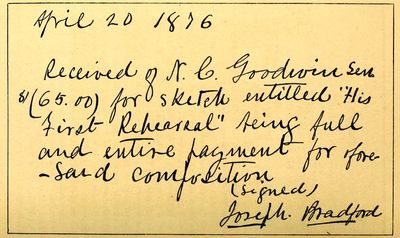 April 20 1876
Received of N. C. Goodwin Sen
$(65.00) for sketch entitled "His
First Rehearsal" being full
and entire payment for afore-
-said composition
(Signed)
Joseph. Bradford